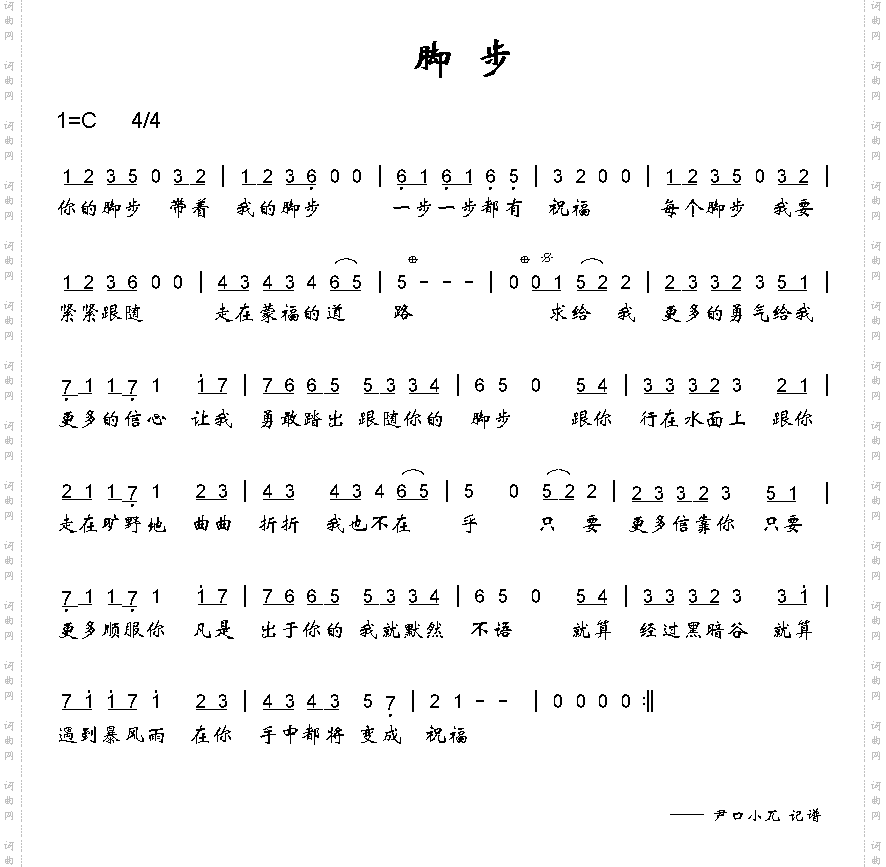 脚 步
1=C 4/4
1 2 3 5 0 3 2 | 1 2 3 6 0 0 | 6 1 6 1 6 5 | 3 2 0 0 | 1 2 3 5 0 3 2 |
你的脚步 带着 我的脚步 一步一步都有 祝福 每个脚步 我要
1 2 3 6 0 0 | 4 3 4 3 4 6 5 | 5 - - - | 0 0 1 5 2 2 | 2 3 3 2 3 5 1 |
紧紧跟随 走在蒙福的道 路 求给 我 更多的勇气给我
7 1 1 7 1 1 7 | 7 6 6 5 5 3 3 4 | 6 5 0 5 4 | 3 3 3 2 3 2 1 |
更多的信心 让我 勇敢踏出 跟随你的 脚步 跟你 行在水面上 跟你
2 1 1 7 1 2 3 | 4 3 4 3 4 6 5 | 5 0 5 2 2 | 2 3 3 2 3 5 1 |
走在旷野地 曲曲 折折 我也不在 乎 只 要 更多信靠你 只要
7 1 1 7 1 1 7 | 7 6 6 5 5 3 3 4 | 6 5 0 5 4 | 3 3 3 2 3 3 1 |
更多顺服你 凡是 出于你的 我就默然 不语 就算 经过黑暗谷 就算
7 1 1 7 1 2 3 | 4 3 4 3 5 7 | 2 1 - - | 0 0 0 0 :||
遇到暴风雨 在你 手中都将 变成 祝福
—— 尹口小兀 记谱
词曲网